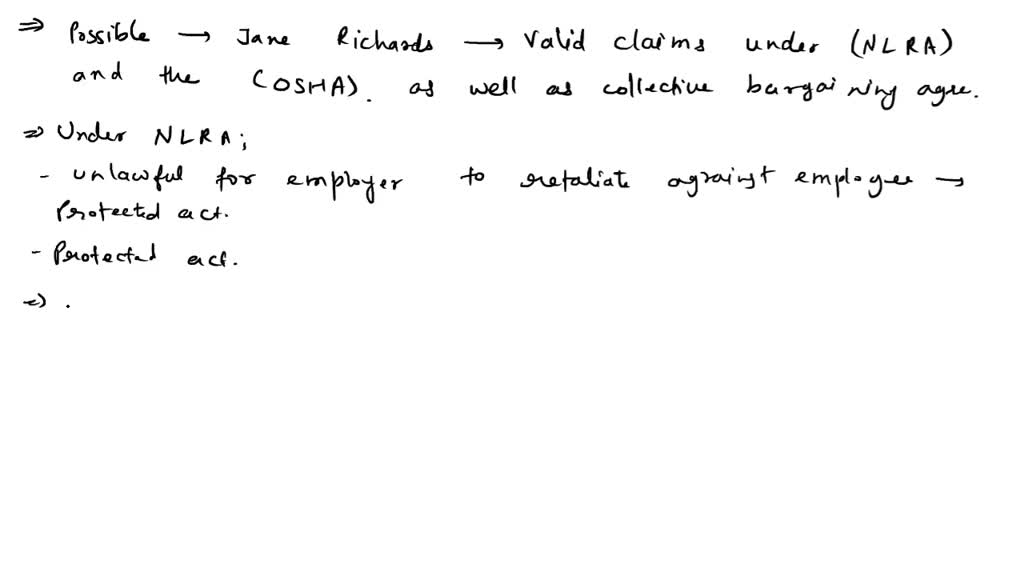 ⇒ Possible → Jane Richards → Valid claims under (NLRA)
and the (OSHA). as well as collective bargaining agre.
⇒ Under NLRA;
- unlawful for employer to retaliate against employee →
Protected act.
- Protected act.
⇒ .